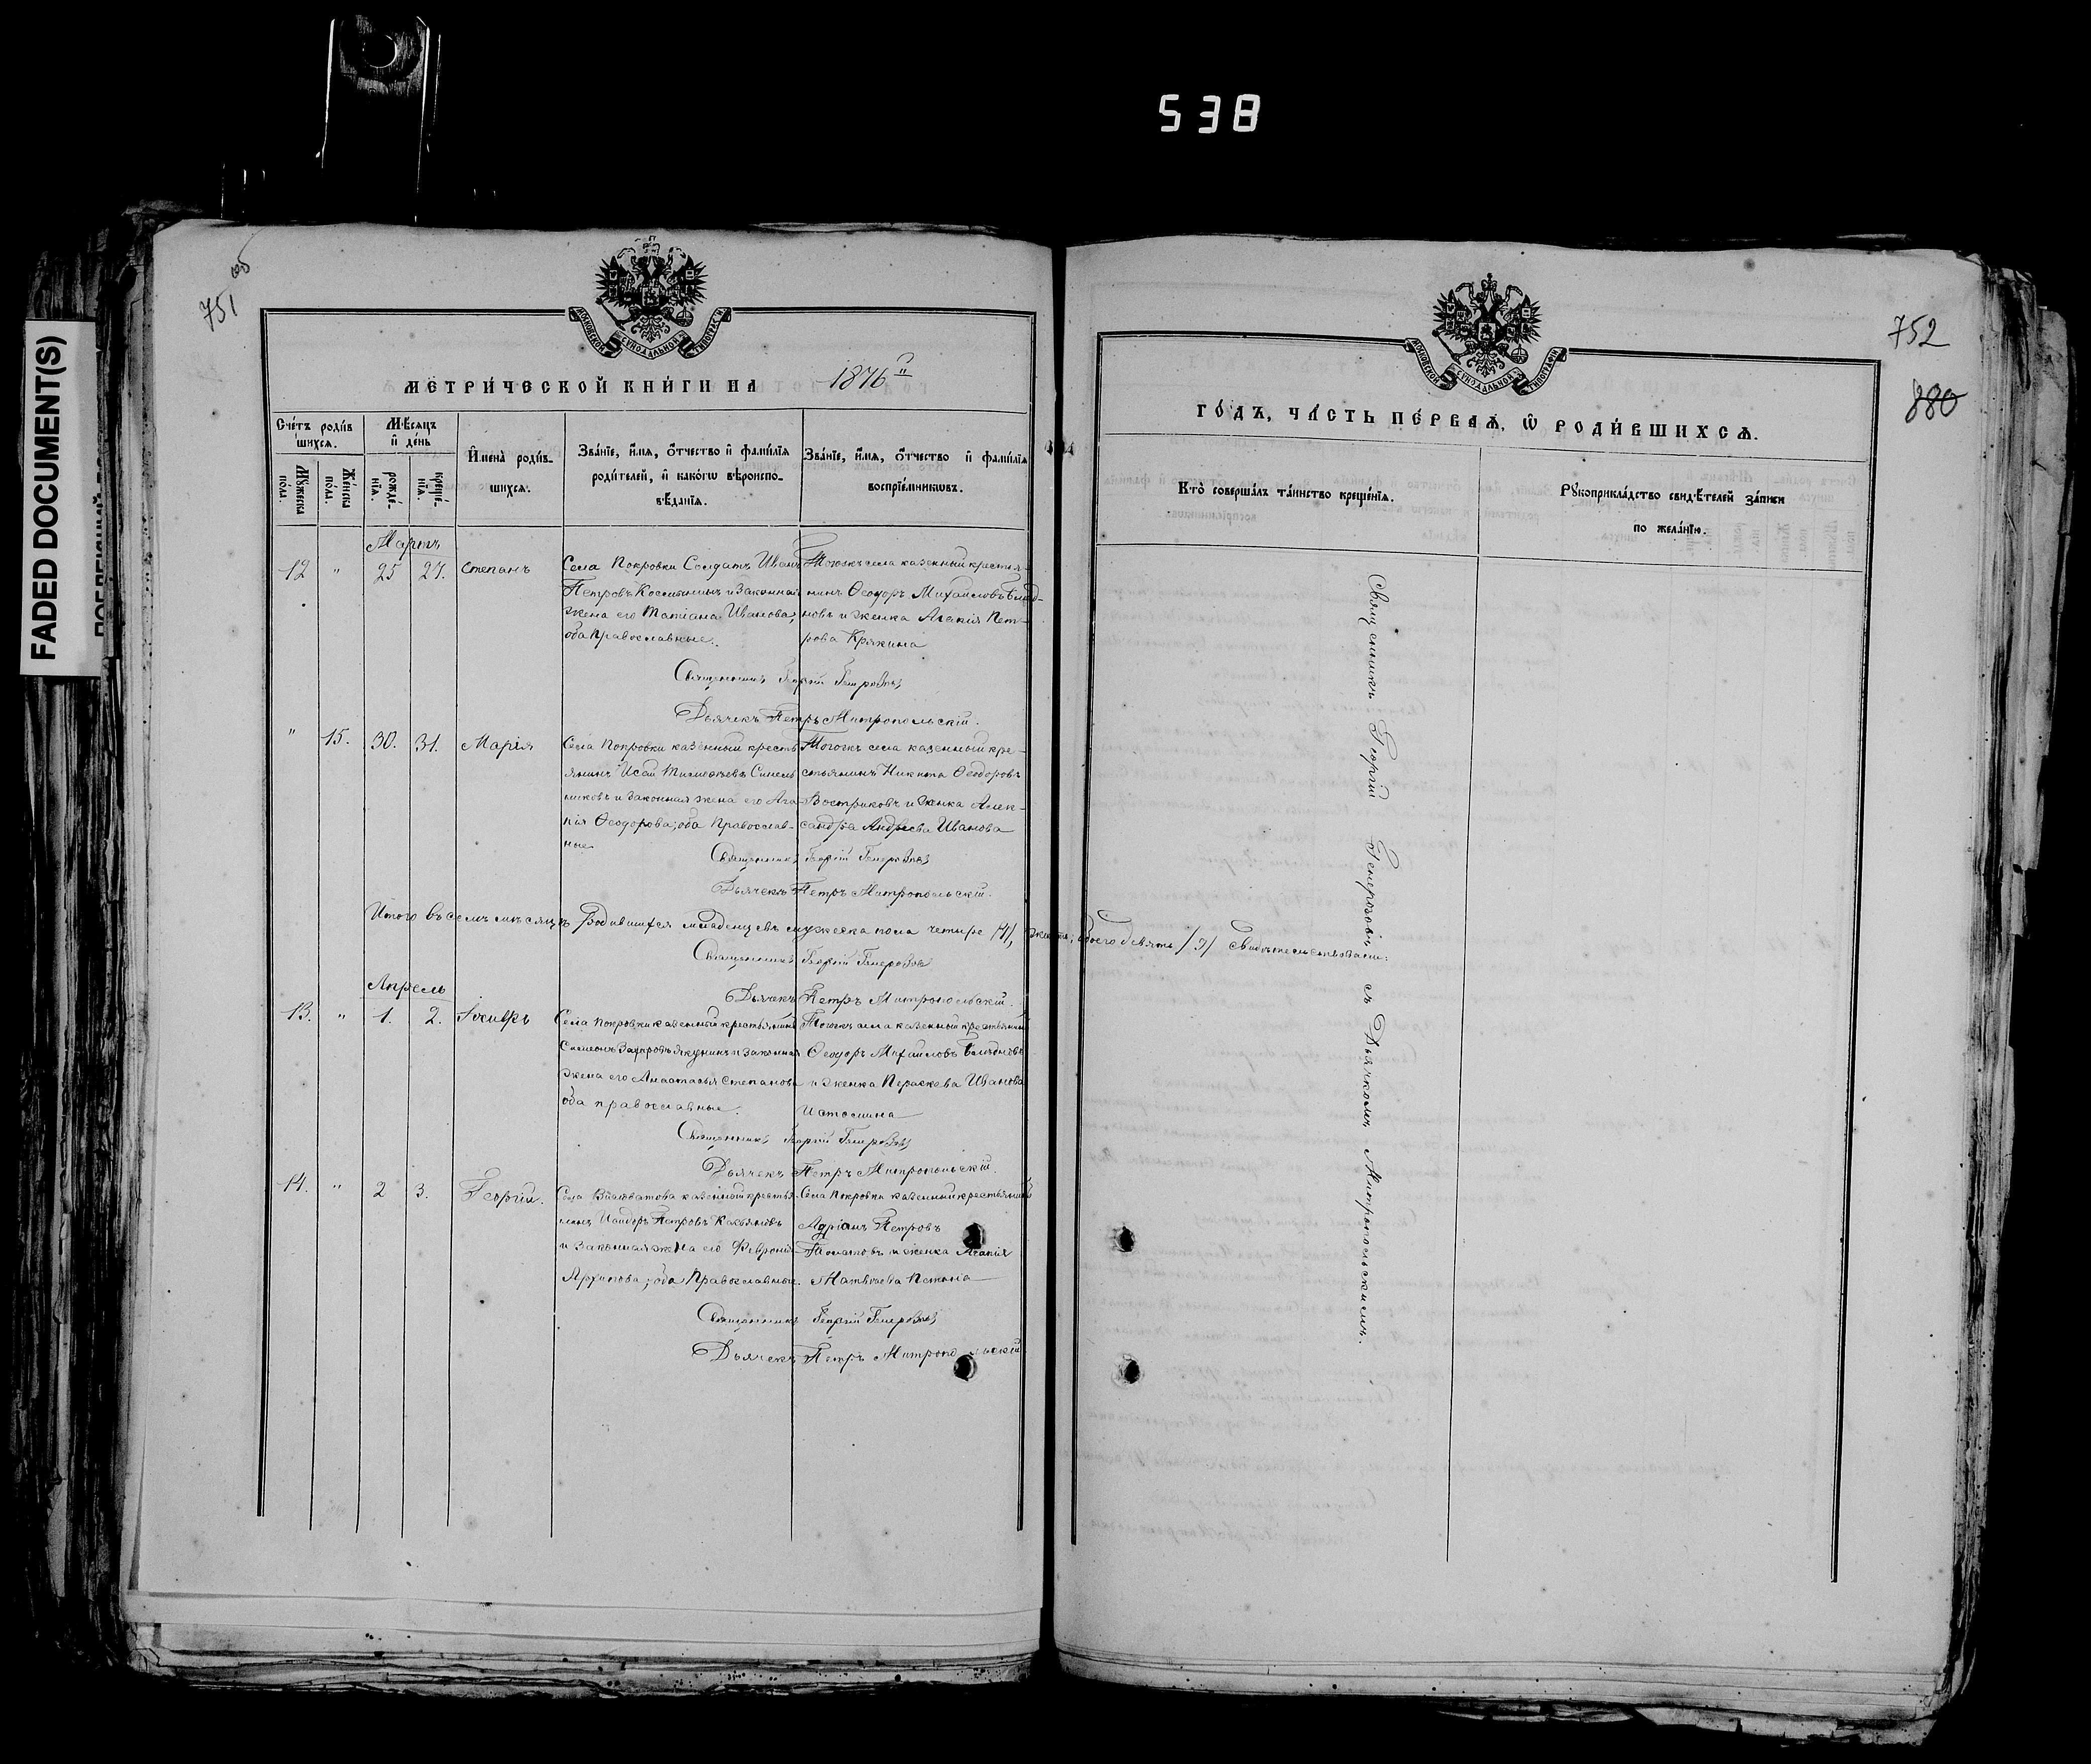 538
FADED DOCUMENT(S)
751 об
МОСКОВСКОЙ СѴНОДАЛЬНОЙ ТИПОГРАФІИ
МЕТРИ́ЧЕСКОЙ КНИ́ГИ НА 1876й
Сче́тъ роди́в
шихся.
Мꙋ́жеска
по́ла.
Же́нска
по́ла.
Мѣ́сяцъ
и҆ де́нь
рожде́-
нїѧ.
креще́-
нїѧ.
И҆мена̀ роди́в-
шихсѧ.
Зва́нїе, и҆́мѧ, ѻ҆́тчество и҆ фами́лїѧ
роди́телей, и҆ како́гѡ вѣроиспо-
вѣ́данїѧ.
Зва́нїе, и҆́мѧ, ѻ҆́тчество и҆ фами́лїѧ
воспрїе́мникѡвъ.
Мартъ
12 " 25 27. Степанъ
Села Покровки Солдатъ Иванъ
Петровъ и Законная
жена его Татіана Иванова,
оба Православные.
Тогожъ села казенный крестья-
нинъ Ѳеодоръ Михайловъ
новъ и женка Агапія Пет-
рова Крякина
Священникъ Георгій Генерозовъ
Дьячекъ Петръ Митропольскій.
" 15. 30. 31. Марія
Села Покровки казенный кресть
янинъ Исай Тимоѳеевъ Синель
никовъ и Законная жена его Ага-
пія Ѳеодорова; оба Православ-
ные
Тогожъ села казенный кре-
стьянинъ Никита Ѳеодоровъ
Востриковъ и женка Алек-
сандра Андреева Иванова
Священникъ Георгій Генерозовъ
Дьячекъ Петръ Митропольскій.
Итого въ семъ мѣсяцѣ Родившихся младенцевъ мужеска пола четыре /4/, обоего девять /9/ Свидѣтельствовали:
Священникъ Георгій Генерозовъ
Дьячекъ Петръ Митропольскій.
Апрель
13. " 1. 2.
Села Покровки казенный крестьянинъ
Симеонъ Захаровъ Якунинъ и Законная
жена его Анастасія Степанова
оба православные.
Тогожъ села казенный крестьянинъ
Ѳеодоръ Михайловъ
и женка Параскева Иванова
Истомина
Священникъ Георгій Генерозовъ
Дьячекъ Петръ Митропольскій.
14. " 2 3. Георгій.
Села казенный крестья-
нинъ Исидоръ Петровъ Касьяновъ
и Законная жена его Февронія
Архипова; оба Православные.
Села Покровки казенный крестьянинъ
Адріанъ Петровъ
и женка Агапія
Матвѣева
Священникъ Георгій Генерозовъ
Дьячекъ Петръ Митропольскій
752
880
МОСКОВСКОЙ СѴНОДАЛЬНОЙ ТИПОГРАФІИ
ГО́ДЪ, ЧА́СТЬ ПЕ́РВАѦ, Ѽ РОДИ́ВШИХСѦ.
Кто̀ соверша́лъ та́инство креще́нїѧ.
Рꙋкоприкла́дство свидѣ́телей за́писи
по жела́нїю.
Священникъ Георгій Генерозовъ съ Дьячкомъ Митропольскимъ.